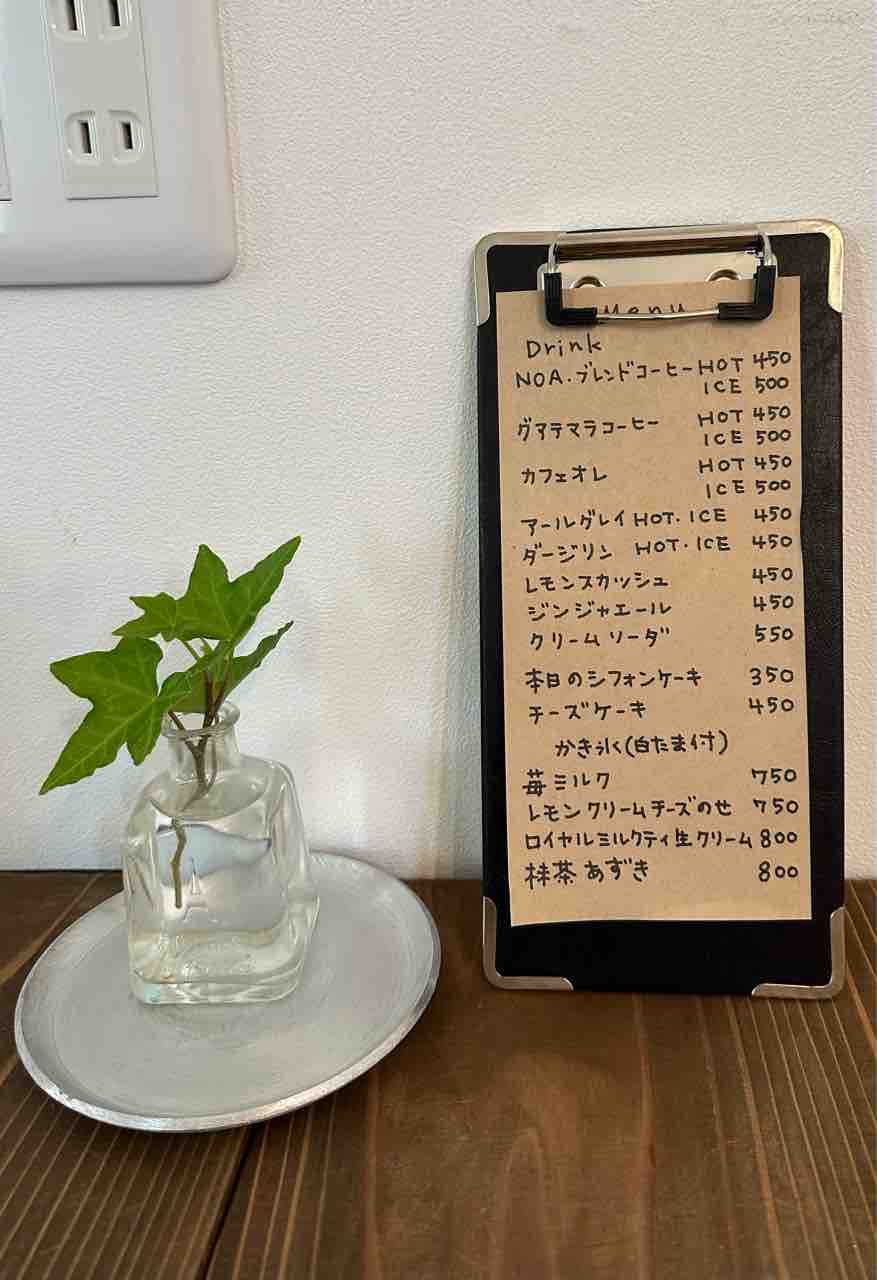 Menu
Drink
NOA.ブレンドコーヒー HOT 450
ICE 500
グアテマラコーヒー HOT 450
ICE 500
カフェオレ HOT 450
ICE 500
アールグレイ HOT. ICE 450
ダージリン HOT・ICE 450
レモンスカッシュ 450
ジンジャエール 450
クリームソーダ 550
本日のシフォンケーキ 350
チーズケーキ 450
かき氷(白たま付)
苺ミルク 750
レモンクリームチーズのせ 750
ロイヤルミルクティ生クリーム 800
抹茶あずき 800